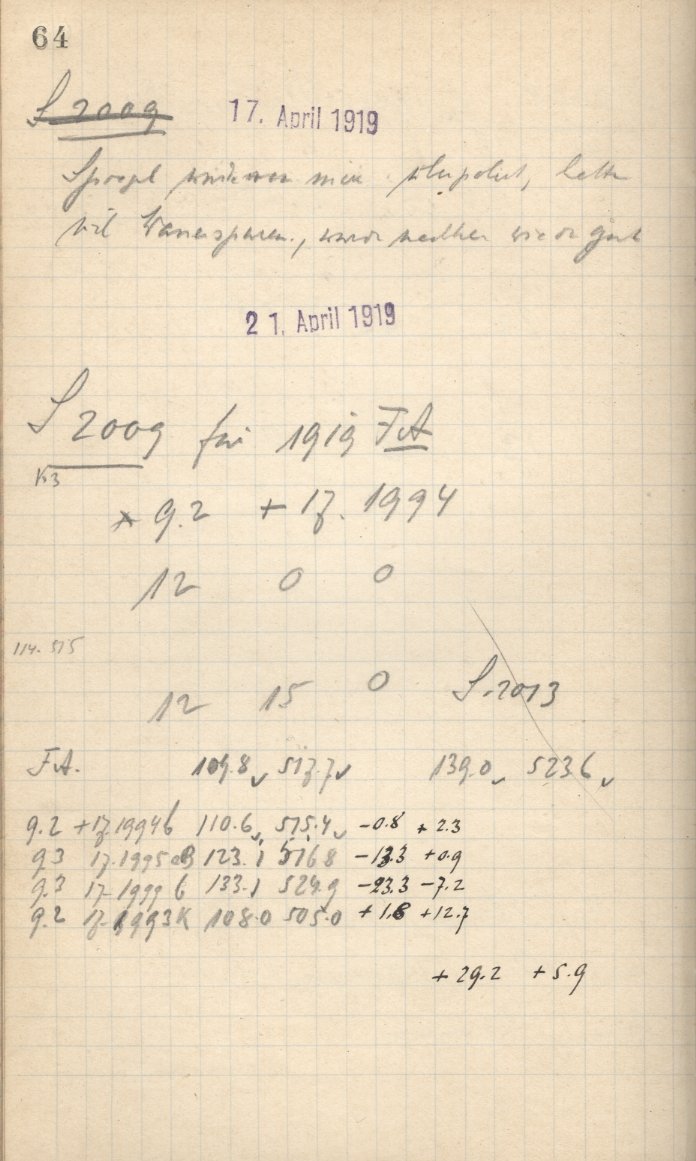 64
S 2009 17. April 1919
Spiegel wiederum neu
viel Wasserspuren, wurde nachher wieder gut
21. April 1919
S 2009 für 1919 FA
K3
* 9.2 + 17. 1994
12 0 0
114. 515
12 15 0 S. 2013
FA. 109.8 517.7 139.0 523.6
9.2 +17.1994 b 110.6 515.4 -0.8 +2.3
9.3 17.1995 aB 123.1 516.8 -13.3 +0.9
9.3 17.1999 b 133.1 524.9 -23.3 -7.2
9.2 17.1993 K 108.0 505.0 +1.8 +12.7
+29.2 +5.9